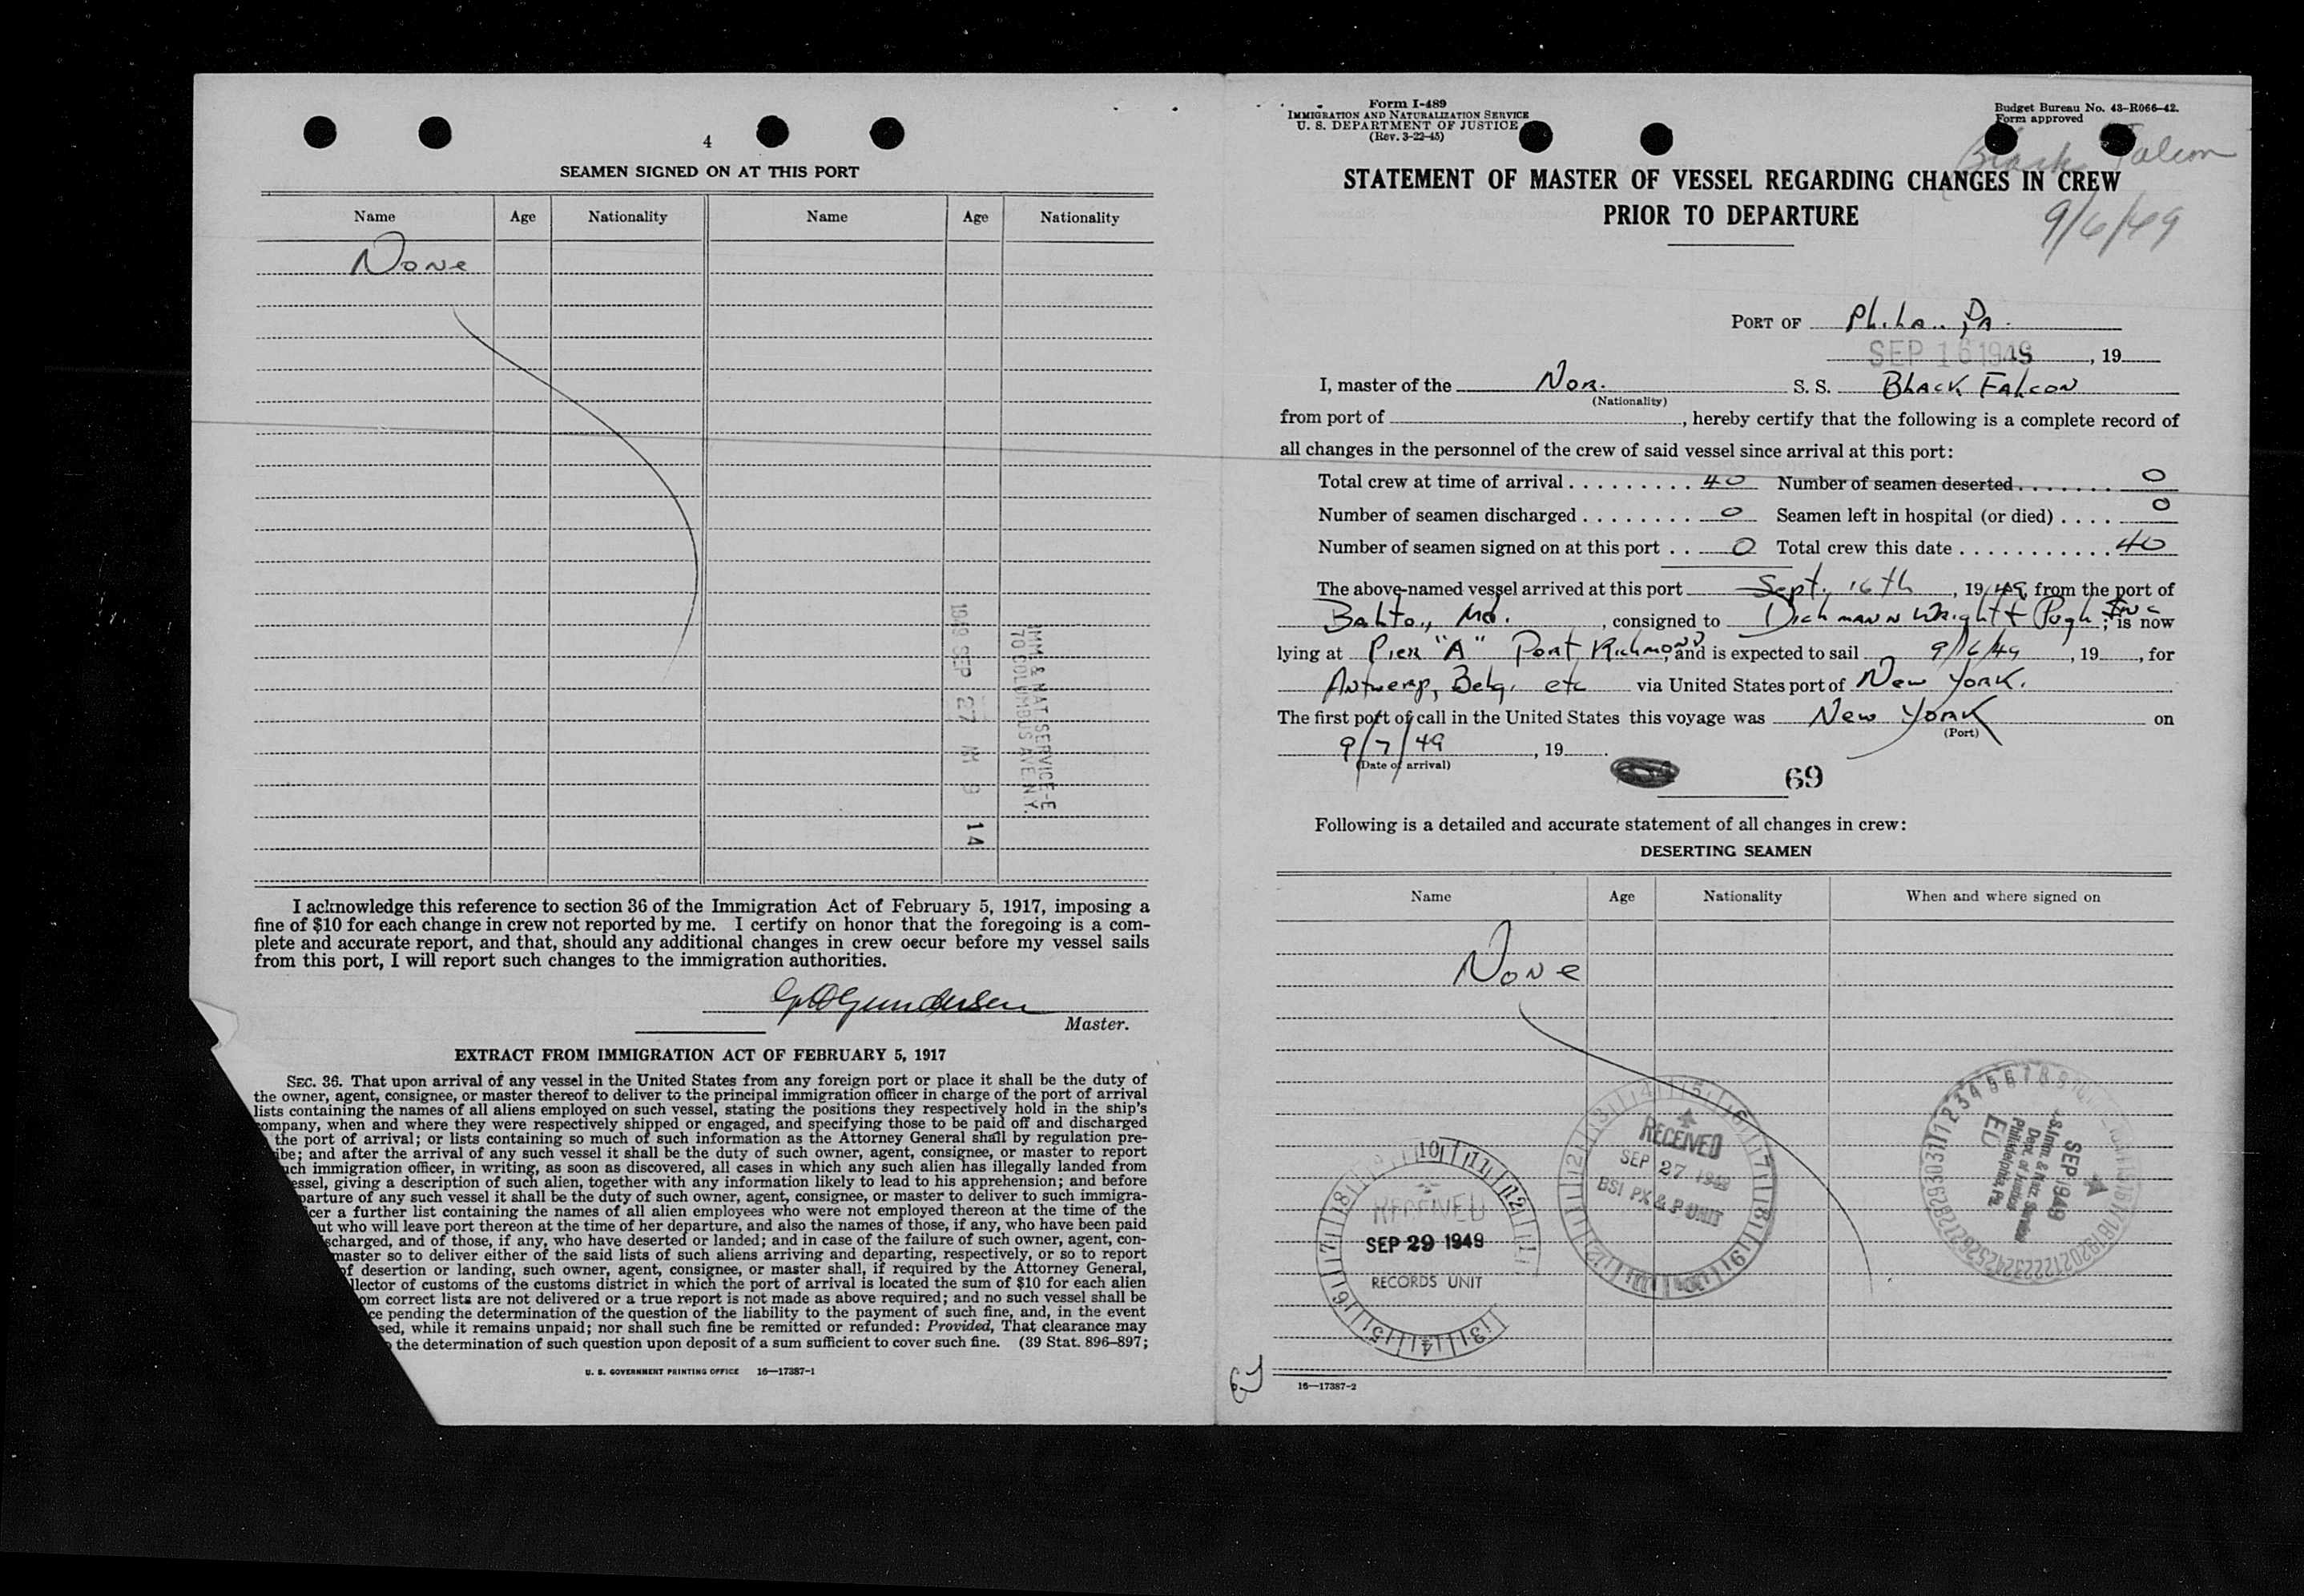 4
SEAMEN SIGNED ON AT THIS PORT
Name Age Nationality Name Age Nationality
None
1949 SEP 27 AM 9 14
IMM & NAT SERVICE-E
70 COLUMBUS AVE N.Y.
I acknowledge this reference to section 36 of the Immigration Act of February 5, 1917, imposing a
fine of $10 for each change in crew not reported by me. I certify on honor that the foregoing is a com-
plete and accurate report, and that, should any additional changes in crew occur before my vessel sails
from this port, I will report such changes to the immigration authorities.
Gundersen
Master.
EXTRACT FROM IMMIGRATION ACT OF FEBRUARY 5, 1917
SEC. 36. That upon arrival of any vessel in the United States from any foreign port or place it shall be the duty of
the owner, agent, consignee, or master thereof to deliver to the principal immigration officer in charge of the port of arrival
lists containing the names of all aliens employed on such vessel, stating the positions they respectively hold in the ship's
company, when and where they were respectively shipped or engaged, and specifying those to be paid off and discharged
the port of arrival; or lists containing so much of such information as the Attorney General shall by regulation pre-
ibe; and after the arrival of any such vessel it shall be the duty of such owner, agent, consignee, or master to report
ch immigration officer, in writing, as soon as discovered, all cases in which any such alien has illegally landed from
essel, giving a description of such alien, together with any information likely to lead to his apprehension; and before
parture of any such vessel it shall be the duty of such owner, agent, consignee, or master to deliver to such immigra-
cer a further list containing the names of all alien employees who were not employed thereon at the time of the
ut who will leave port thereon at the time of her departure, and also the names of those, if any, who have been paid
scharged, and of those, if any, who have deserted or landed; and in case of the failure of such owner, agent, con-
master so to deliver either of the said lists of such aliens arriving and departing, respectively, or so to report
of desertion or landing, such owner, agent, consignee, or master shall, if required by the Attorney General,
llector of customs of the customs district in which the port of arrival is located the sum of $10 for each alien
om correct lists are not delivered or a true report is not made as above required; and no such vessel shall be
ce pending the determination of the question of the liability to the payment of such fine, and, in the event
sed, while it remains unpaid; nor shall such fine be remitted or refunded: Provided, That clearance may
the determination of such question upon deposit of a sum sufficient to cover such fine. (39 Stat. 896–897;
U. S. GOVERNMENT PRINTING OFFICE 16—17387-1
Form I-489
IMMIGRATION AND NATURALIZATION SERVICE
U. S. DEPARTMENT OF JUSTICE
(Rev. 3-22-45)
Budget Bureau No. 43-R066-42.
Form approved
Black Falcon
9/6/49
STATEMENT OF MASTER OF VESSEL REGARDING CHANGES IN CREW
PRIOR TO DEPARTURE
PORT OF Phila., Pa.
SEP 16 1949, 19
I, master of the Nor. S. S. Black Falcon
(Nationality)
from port of , hereby certify that the following is a complete record of
all changes in the personnel of the crew of said vessel since arrival at this port:
Total crew at time of arrival 40 Number of seamen deserted 0
Number of seamen discharged 0 Seamen left in hospital (or died) 0
Number of seamen signed on at this port 0 Total crew this date 40
The above-named vessel arrived at this port Sept. 16th, 1949, from the port of
Balto., Md., consigned to Dichmann Wright & Pugh Inc; is now
lying at Pier "A" Port Richmond, and is expected to sail 9/16/49, 19, for
Antwerp, Belg. etc via United States port of New York.
The first port of call in the United States this voyage was New York on
(Port)
9/7/49, 19.
(Date of arrival)
69
Following is a detailed and accurate statement of all changes in crew:
DESERTING SEAMEN
Name Age Nationality When and where signed on
None
RECEIVED
SEP 27 1949
BSI PX & P UNIT
RECEIVED
SEP 29 1949
RECORDS UNIT
SEP 1949
Imm. & Natz. Service
Dept. of Justice
Philadelphia, Pa.
16—17387-2